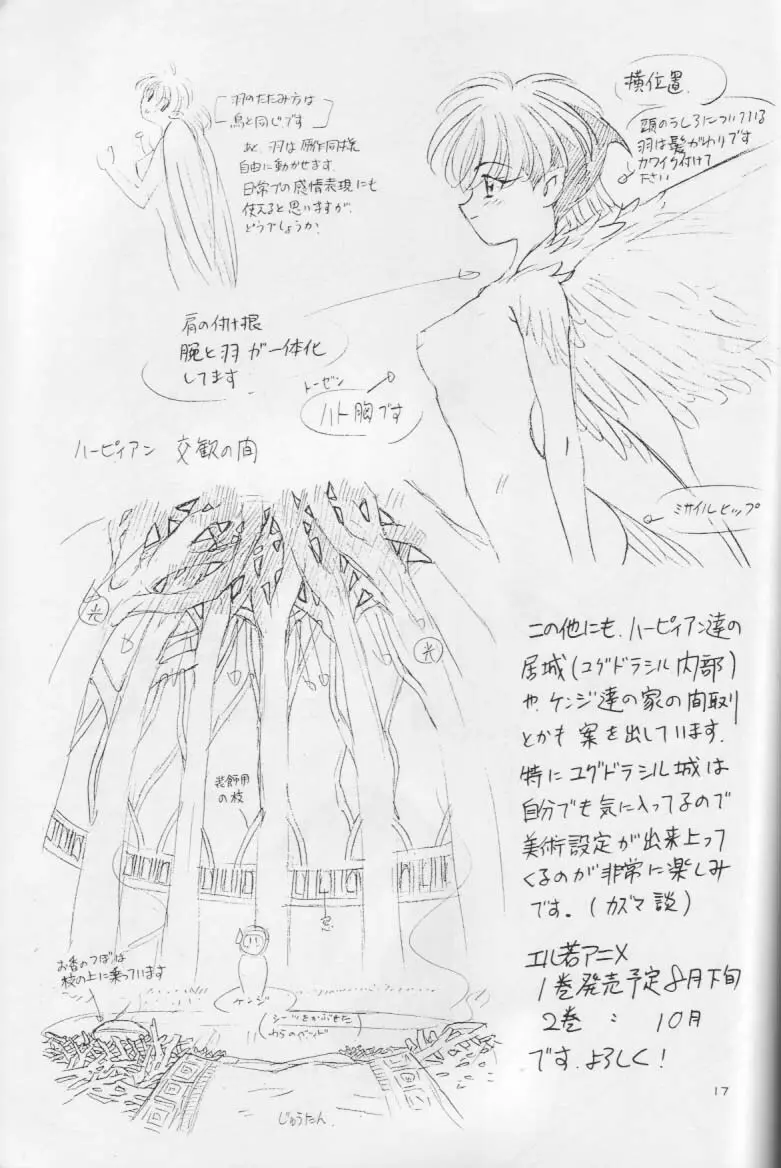 羽のたたみ方は
鳥と同じです
あと、羽は原作同様
自由に動かせます。
日常での感情表現にも
使えると思いますが、
どうでしょうか。
横位置
頭のうしろについている
羽は髪がわりです
カワイク付けて
ください
肩の付け根
腕と羽が一体化
してます
トーゼン
ハト胸です
ミサイルヒップ
ハーピィアン 交歓の間
光
光
装飾用
の枝
窓
お香のつぼは
枝の上に乗っています
ケンジ
(シーツをかぶせた
わらのベッド)
じゅうたん
この他にも、ハーピィアン達の
居城(ユグドラシル内部)
や、ケンジ達の家の間取り
とかも案を出しています。
特にユグドラシル城は
自分でも気に入ってるので
美術設定が出来上って
くるのが非常に楽しみ
です。(カズマ談)
エル若アニメ
1巻発売予定8月下旬
2巻 : 10月
です。よろしく!
17